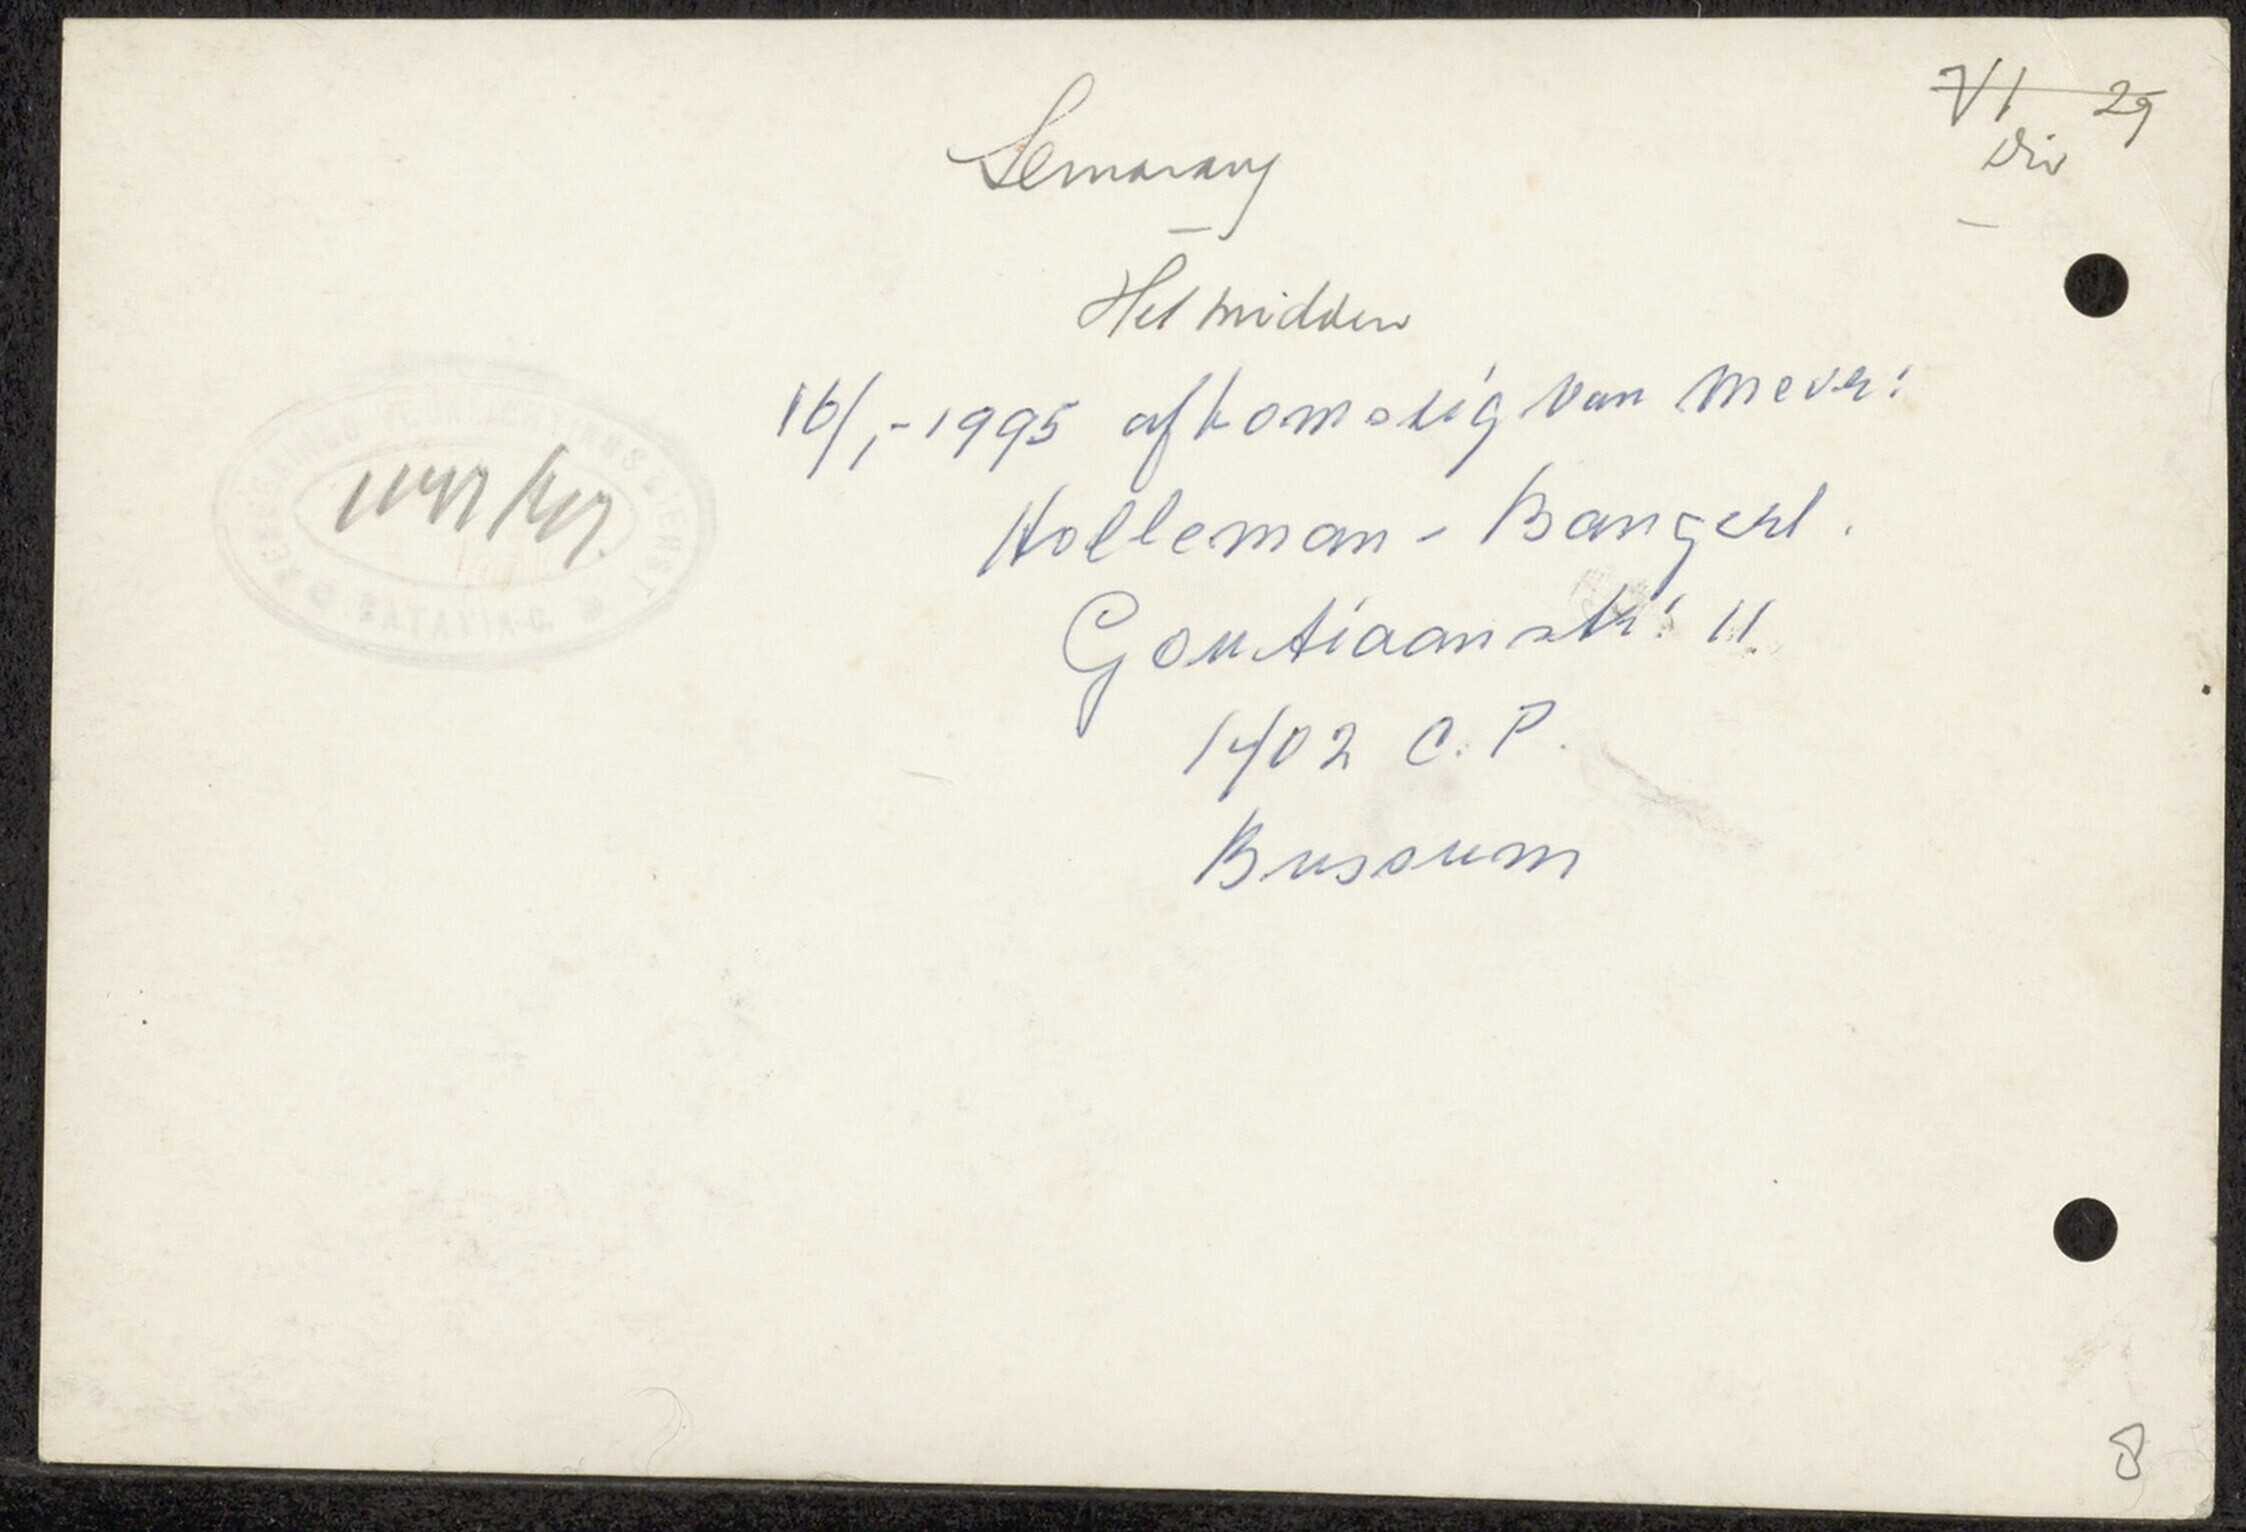 VI 29
Div
Semarang
Het midden
16/1-1995 afkomstig van mevr:
Holleman - Bangert.
Goutiaanstr: 11.
1402 C.P.
Bussum
BATAVIA-C.
8